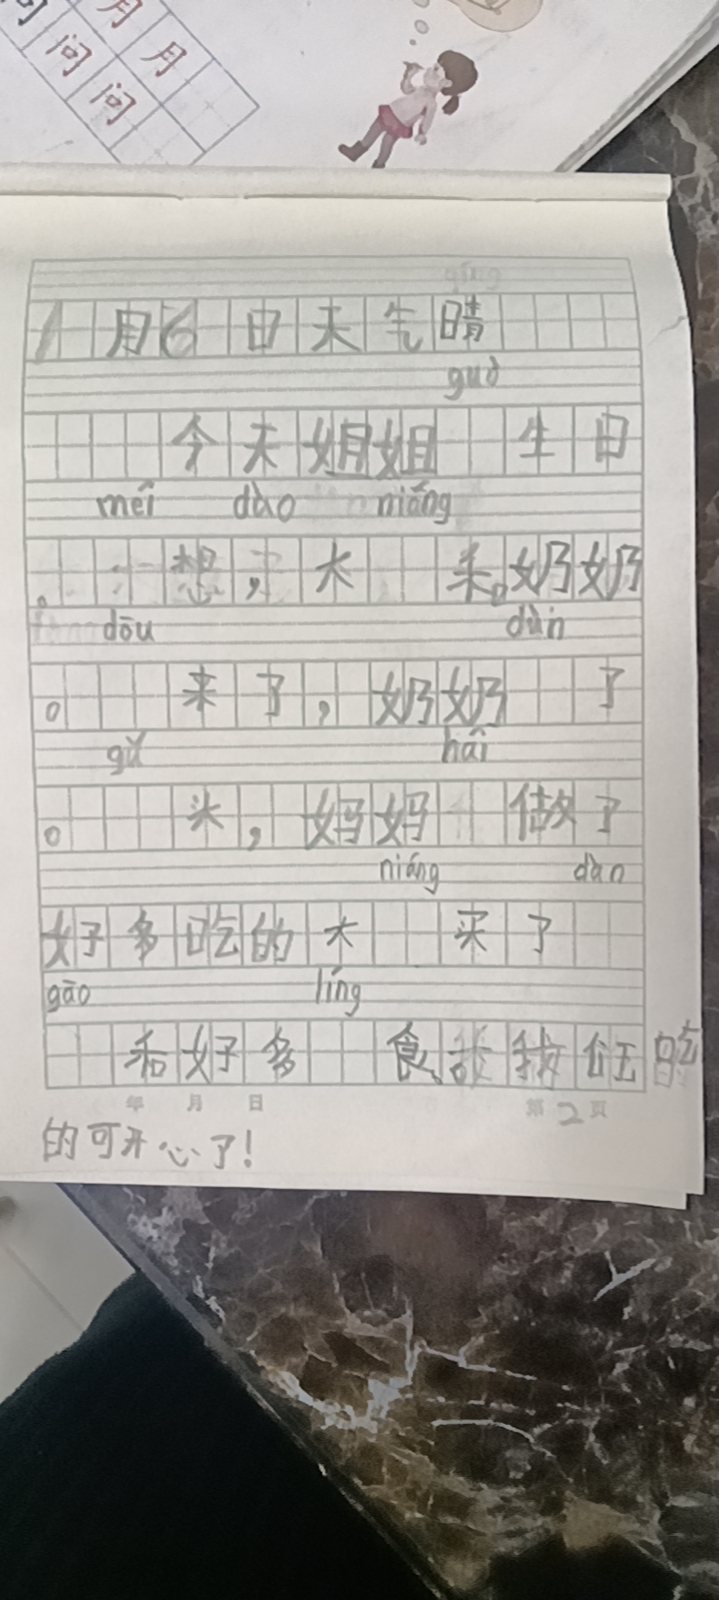 月 月
问 问 问
qíng
1月6日天气晴
guò
今天姐姐 生日
méi dào niáng
。 想,大 来。奶奶
dōu dùn
。 来了,奶奶 了
gǔ hái
。 米,妈妈 做了
niáng dàn
好多吃的大 买了
gāo líng
和好多 食、我们吃
年 月 日 第2页
的可开心了!